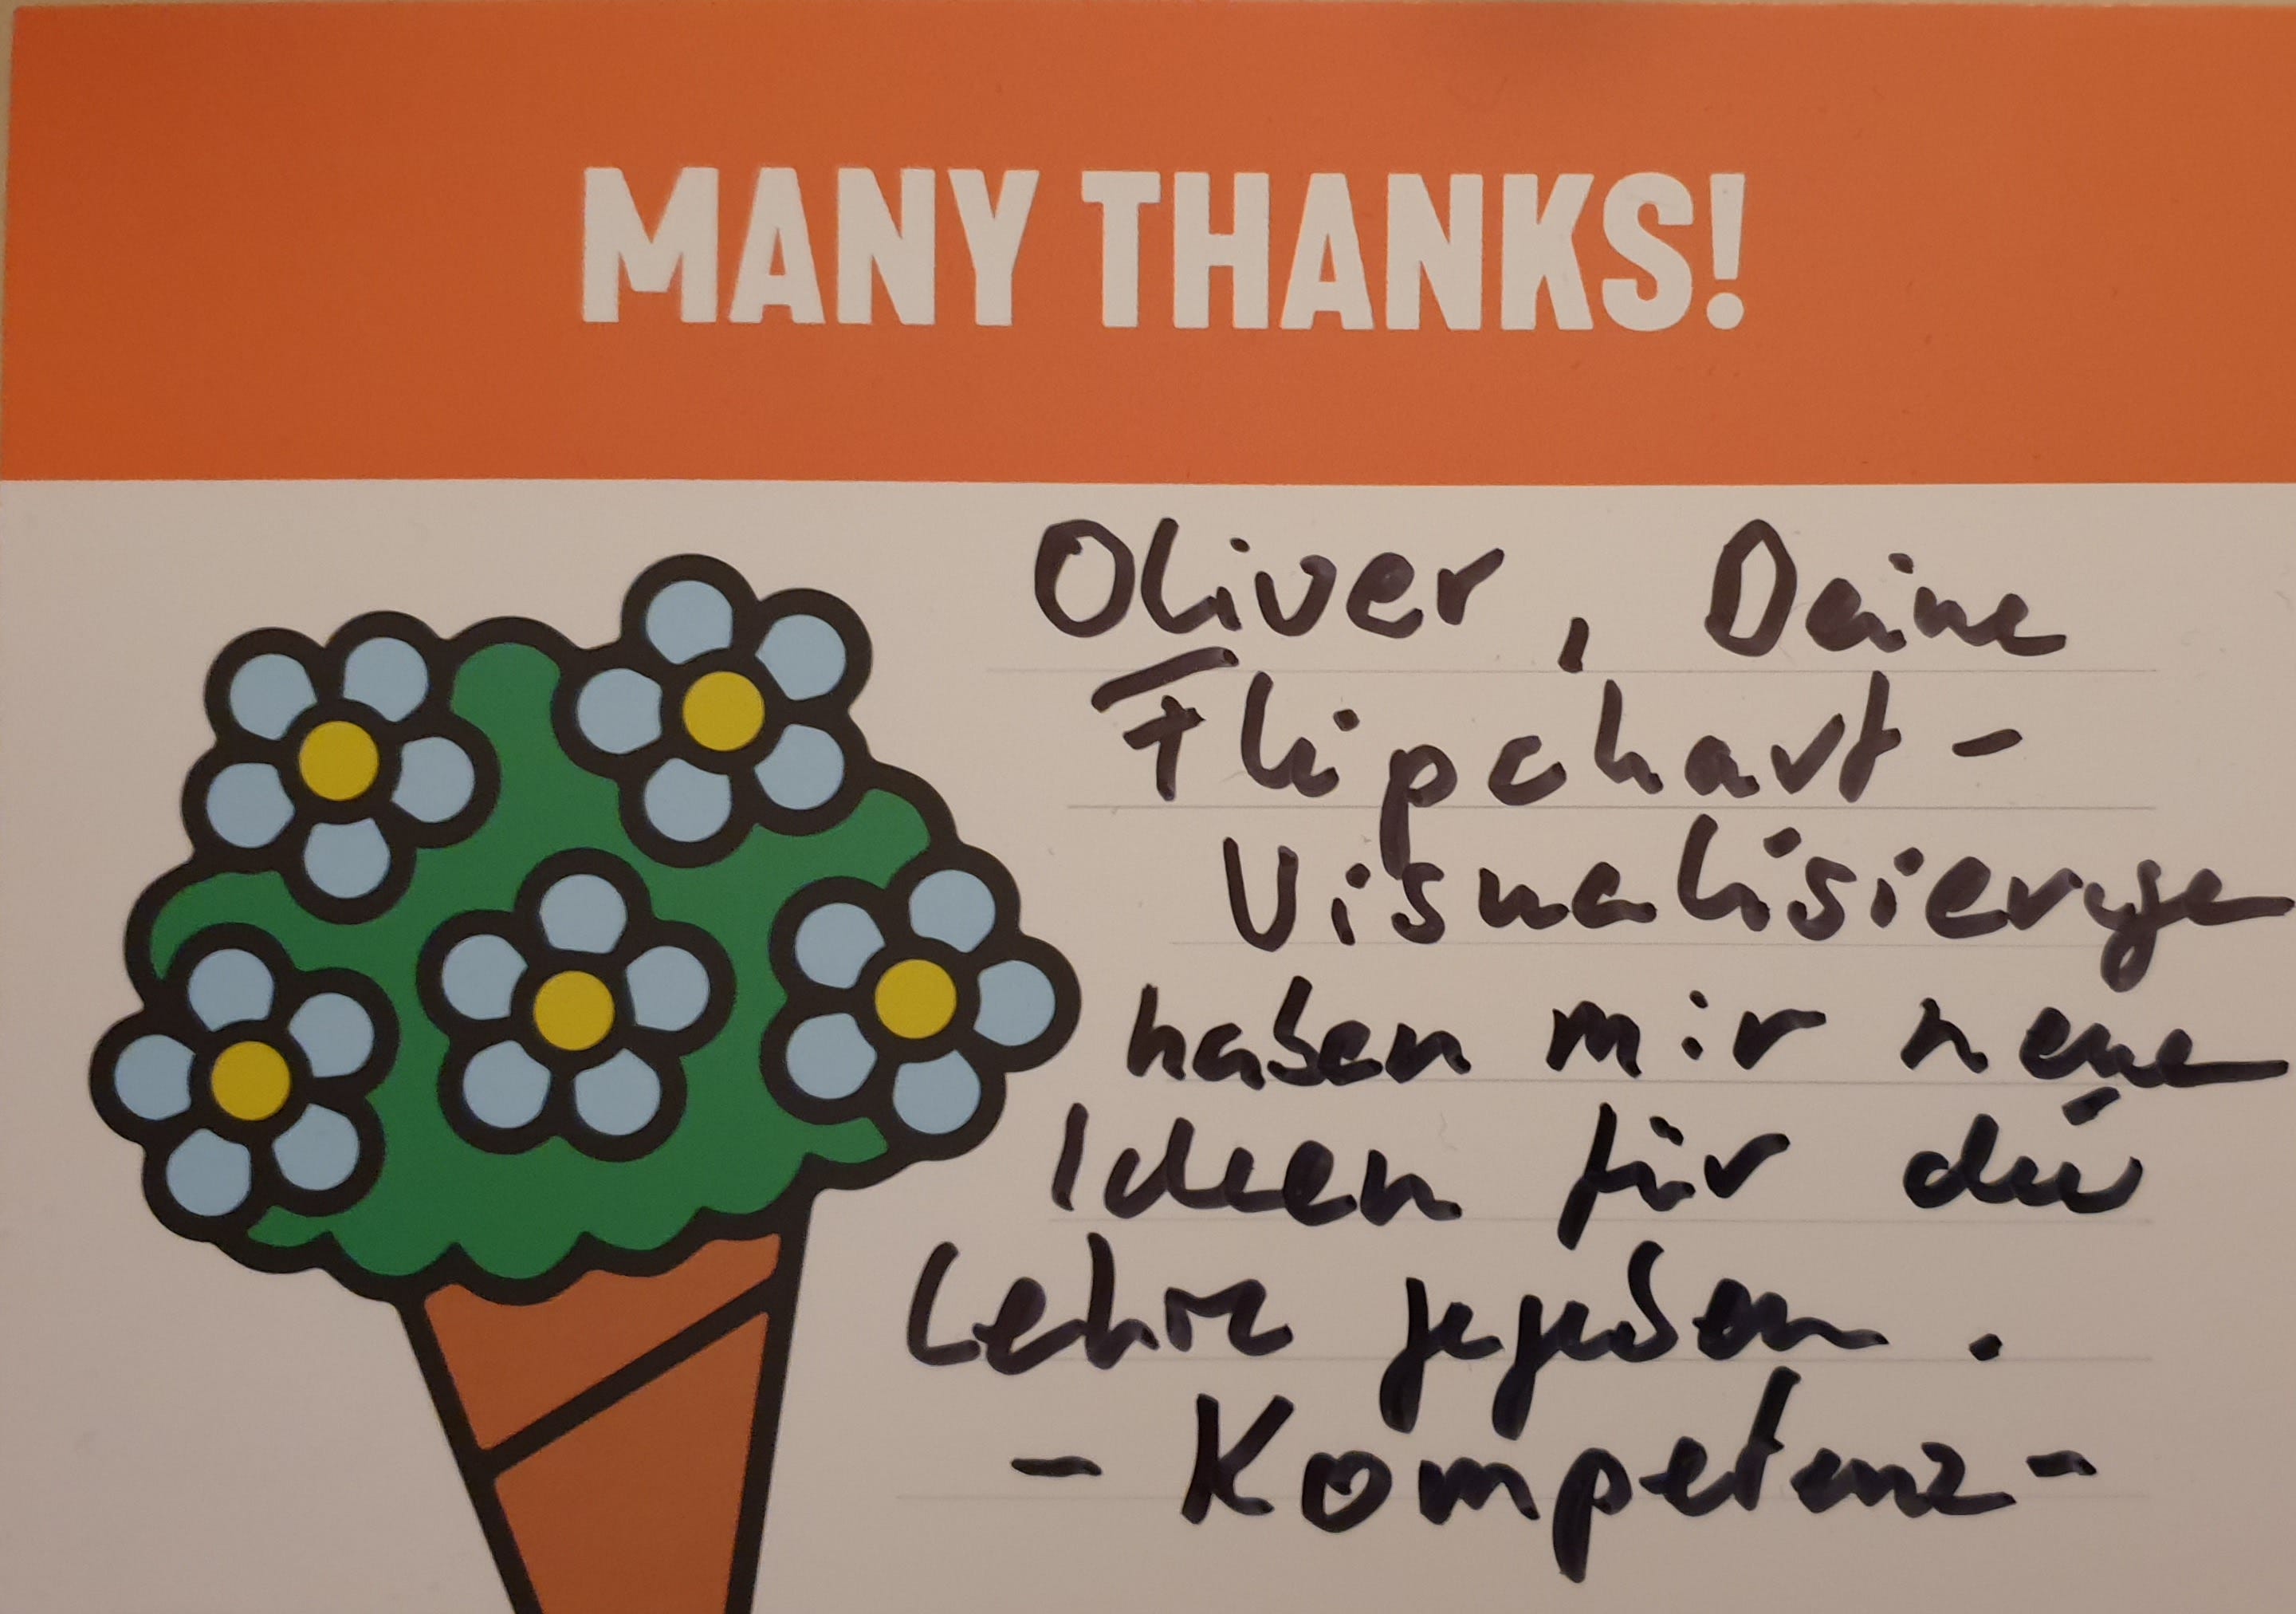 MANY THANKS!
Oliver, Deine
Flipchart-
Visualisierungen
haben mir neue
Ideen für die
Lehre gegeben.
- Kompetenz -